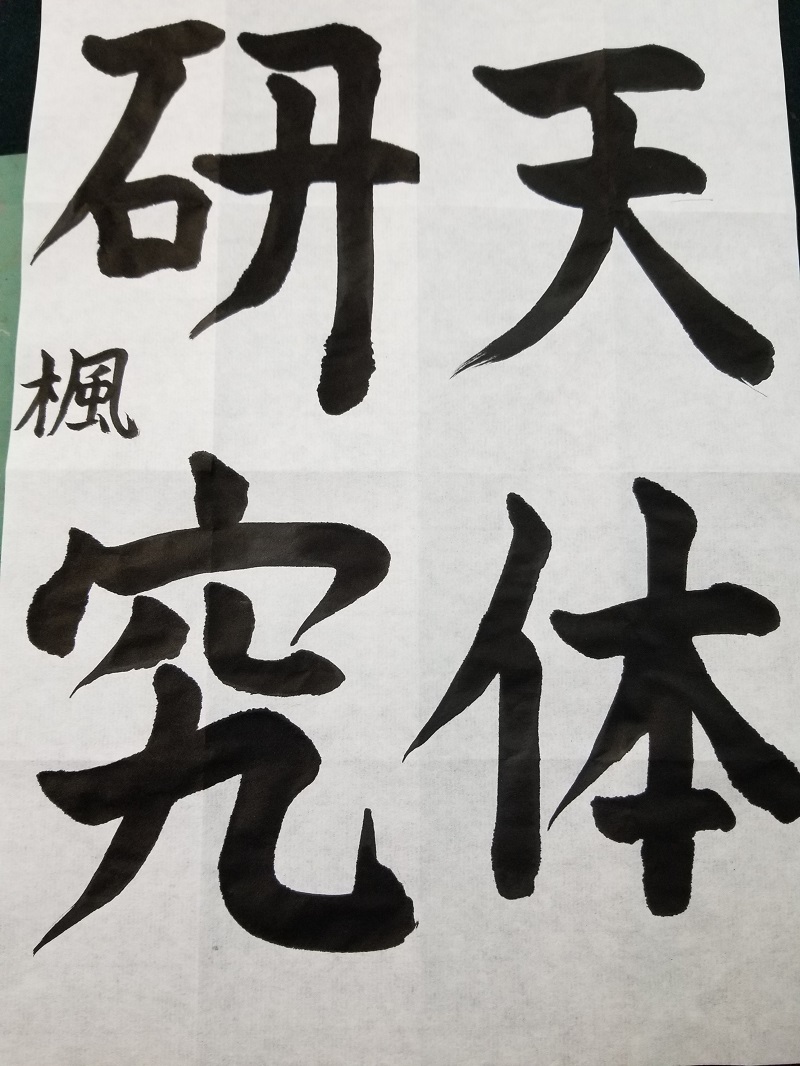 天体
研究
楓